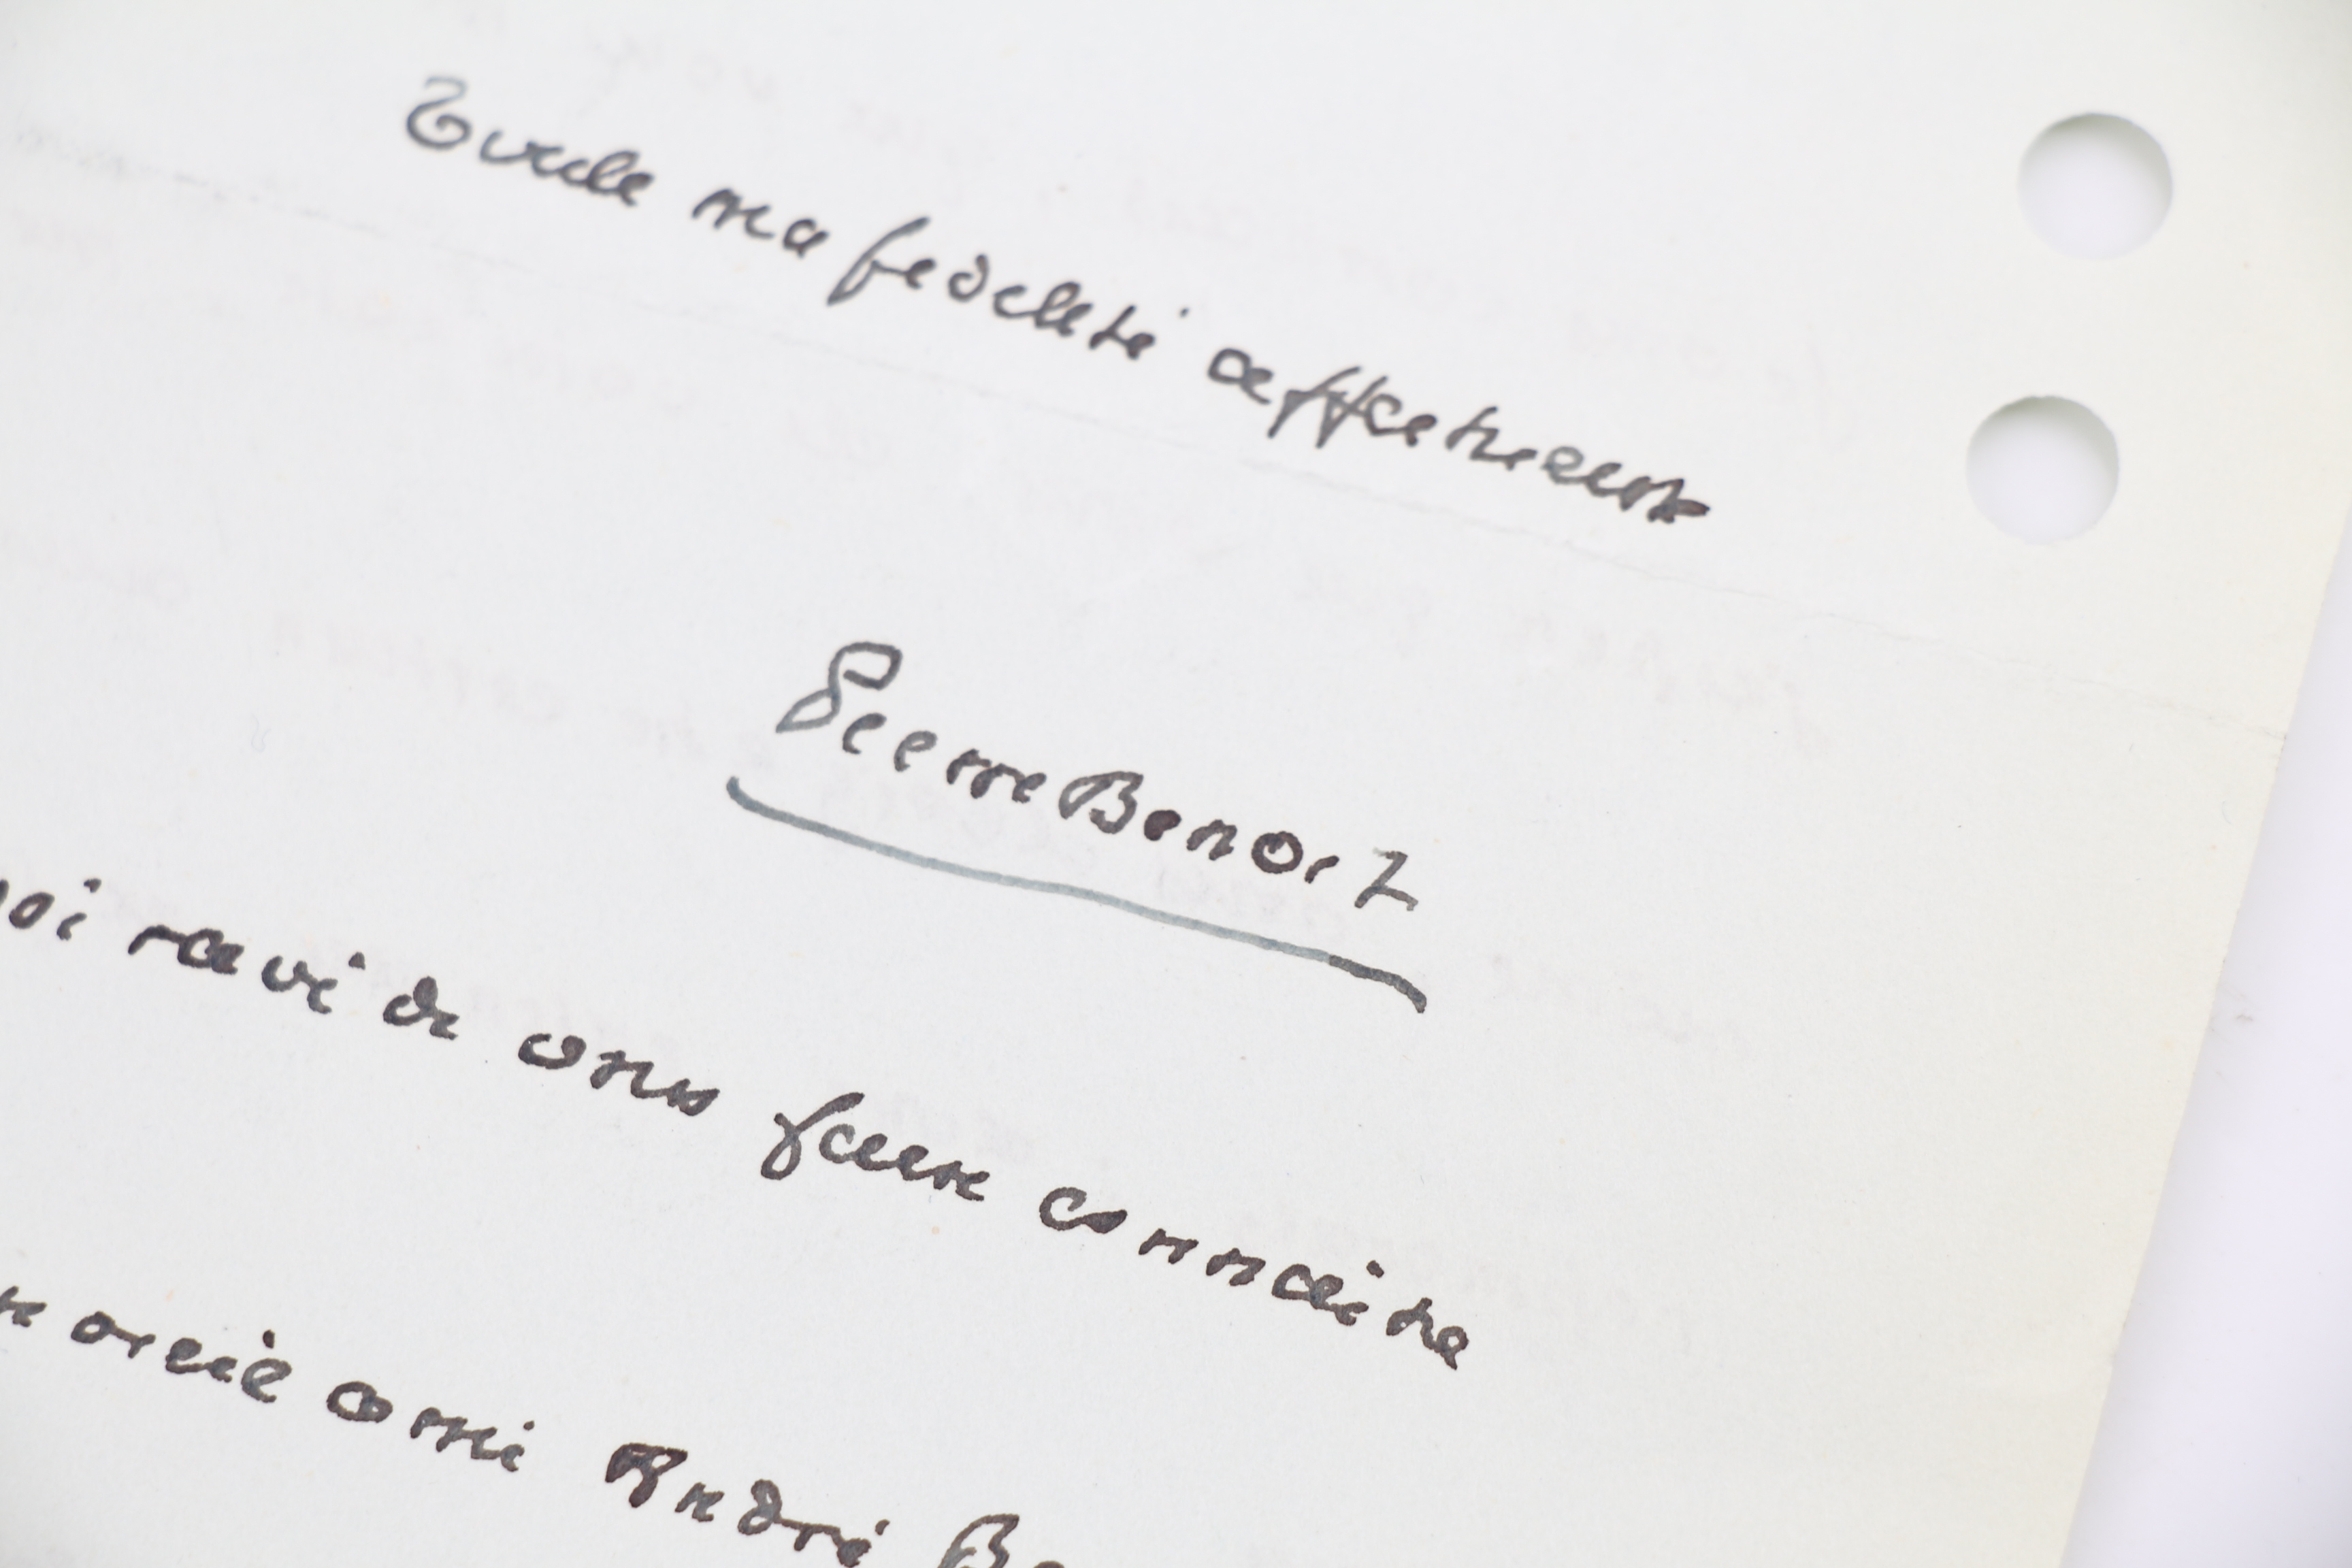 Toute ma fidélité affectueuse
Pierre Benoit
ravi de vous faire connaitre
vieil ami André